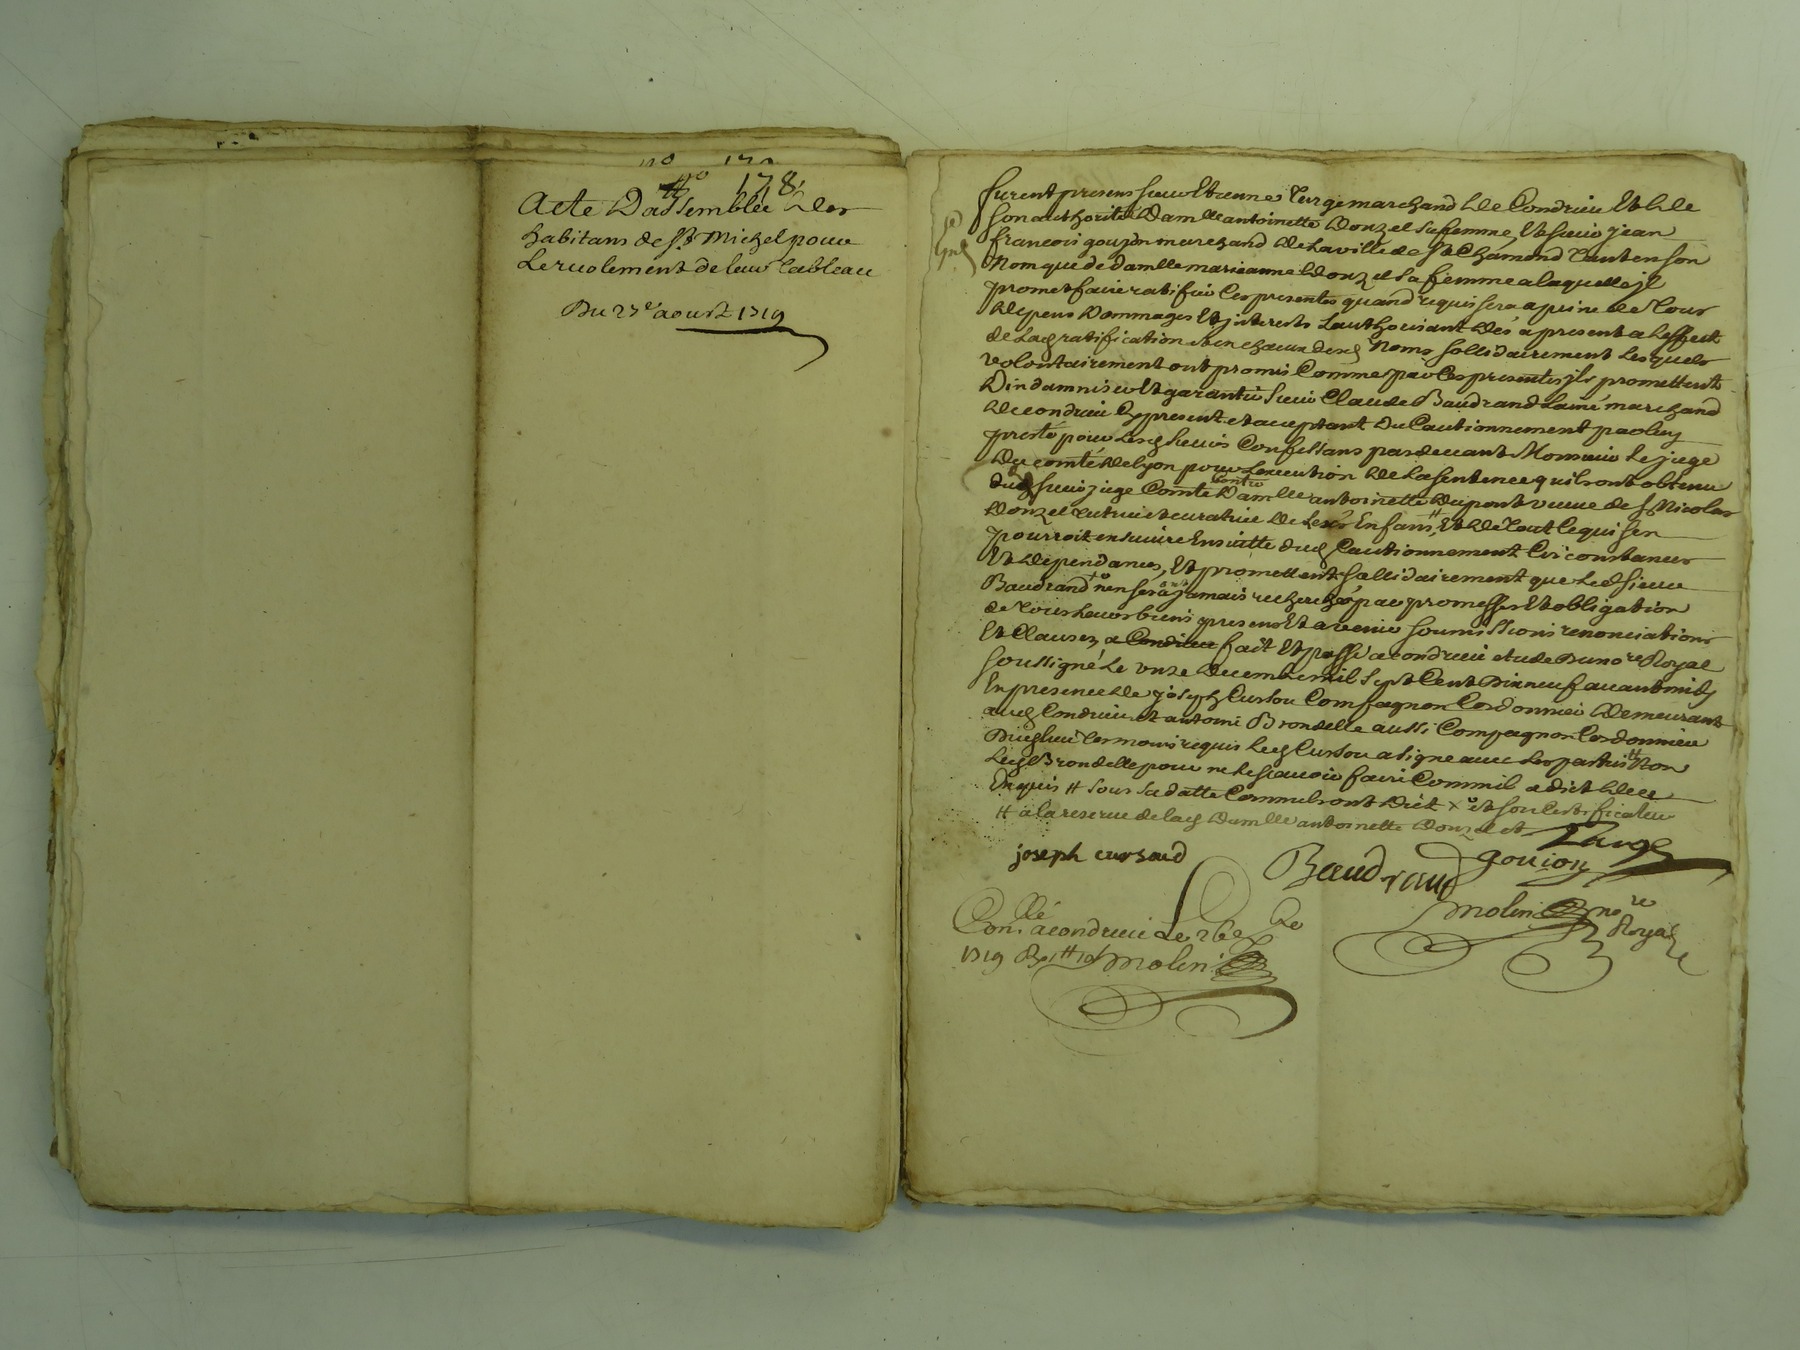 no 178
Acte Dassemblée Des
habitans de St Michel pour
Le ruolement de leur tableau
Du 27e aoust 1719
furent presens sieur Etienne Large marchand De Condrieu Et De
son authorité Damlle antoinette Donzel sa femme, Et sieur jean
francois goujon marchand De la ville de St Chamond tant en son
Nom que de damlle marieanne Donzel sa femme a laquelle jl
promet faire ratifier Ces presentes quand requis sera a peine de tous
Depens Dommages Et jnterests Lauthorisant dés a present a Leffect
de lad ratification et en chacun desd Noms sollidairement Lesquels
volontairement ont promis Comme par Ces presentes jls promettent
Dindamniser Et garantir sieur Claude Baudrand Lainé marchand
De condrieu Cy present et acceptant Du Cautionnement par luy
presté pour Lesd sieurs Confessans pardevant Monsieur Le juge
Du comté De Lyon pour Lexecution De La sentence quils ont obtenu
dud sieur juge Comte contre Damlle antoinette Dupont veuve de s Nicolas
Donzel tutrice et curatrice De Ses Enfans, # Et De tout Ce qui sen
pourroit ensuivre En suitte dud Cautionnement Circonstances
Et Dependances, Et promettent sollidairement que Led sieur
Baudrand x nen sera jamais recherché par promesses Et obligation
de tous leurs biens presens Et avenir soumissions renonciations
Et Clauses, a Condrieu fait Et passé a condrieu etude Du nore Royal
soussigné Le onze Decembre mil sept Cent Dixneuf avant midy
En presence De joseph Cursou Compagnon Cordonnier Demeurant
aud Condrieu et antoine Brondelle aussi Compagnon Cordonnier
Dud lieu tesmoins requis Led Cursou a signe avec Les parties # Non
Led Brondelle pour ne Le scavoir faire Comme il a dict De ce
Enquis # sous sa datte Comme ils ont Dict x et son Certificateur
# a la reserve de lad Damlle antoinette Donzel et
Large
joseph cursoud
Baudrand
goujon
Molin nore
Royal
Conlé a condrieu Le
1719 Molin